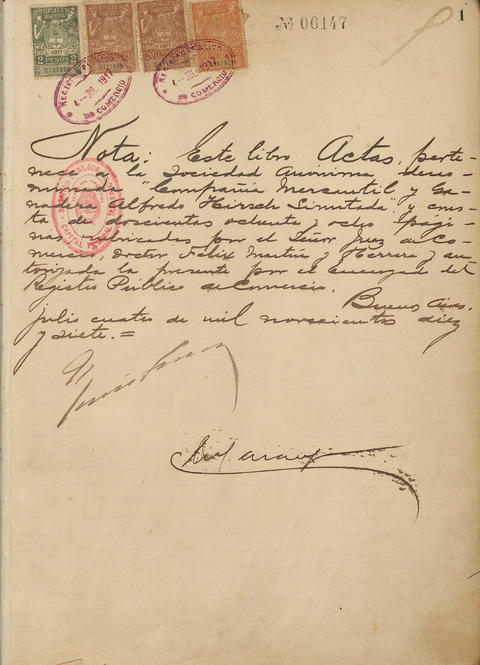 Nº 06147
1
REPUBLICA ARGENTINA
1917
2 PESOS 2
REGISTRO PUBLICO
JUL. 1917
DE COMERCIO
CAPITAL FEDERAL
Nota: Este libro Actas, perte-
nece a la Sociedad Anónima, deno-
minada "Compañía Mercantil y Ga-
nadera Alfredo Hirsch Limitada" y cons-
ta de doscientas ochenta y ocho pági-
nas rubricadas por el Señor Juez de Co-
mercio, Doctor Felix Martin y Herrera y au-
torizada la presente por el encargado del
Registro Público de Comercio.
Buenos Aires,
julio cuatro de mil novecientos diez
y siete.=